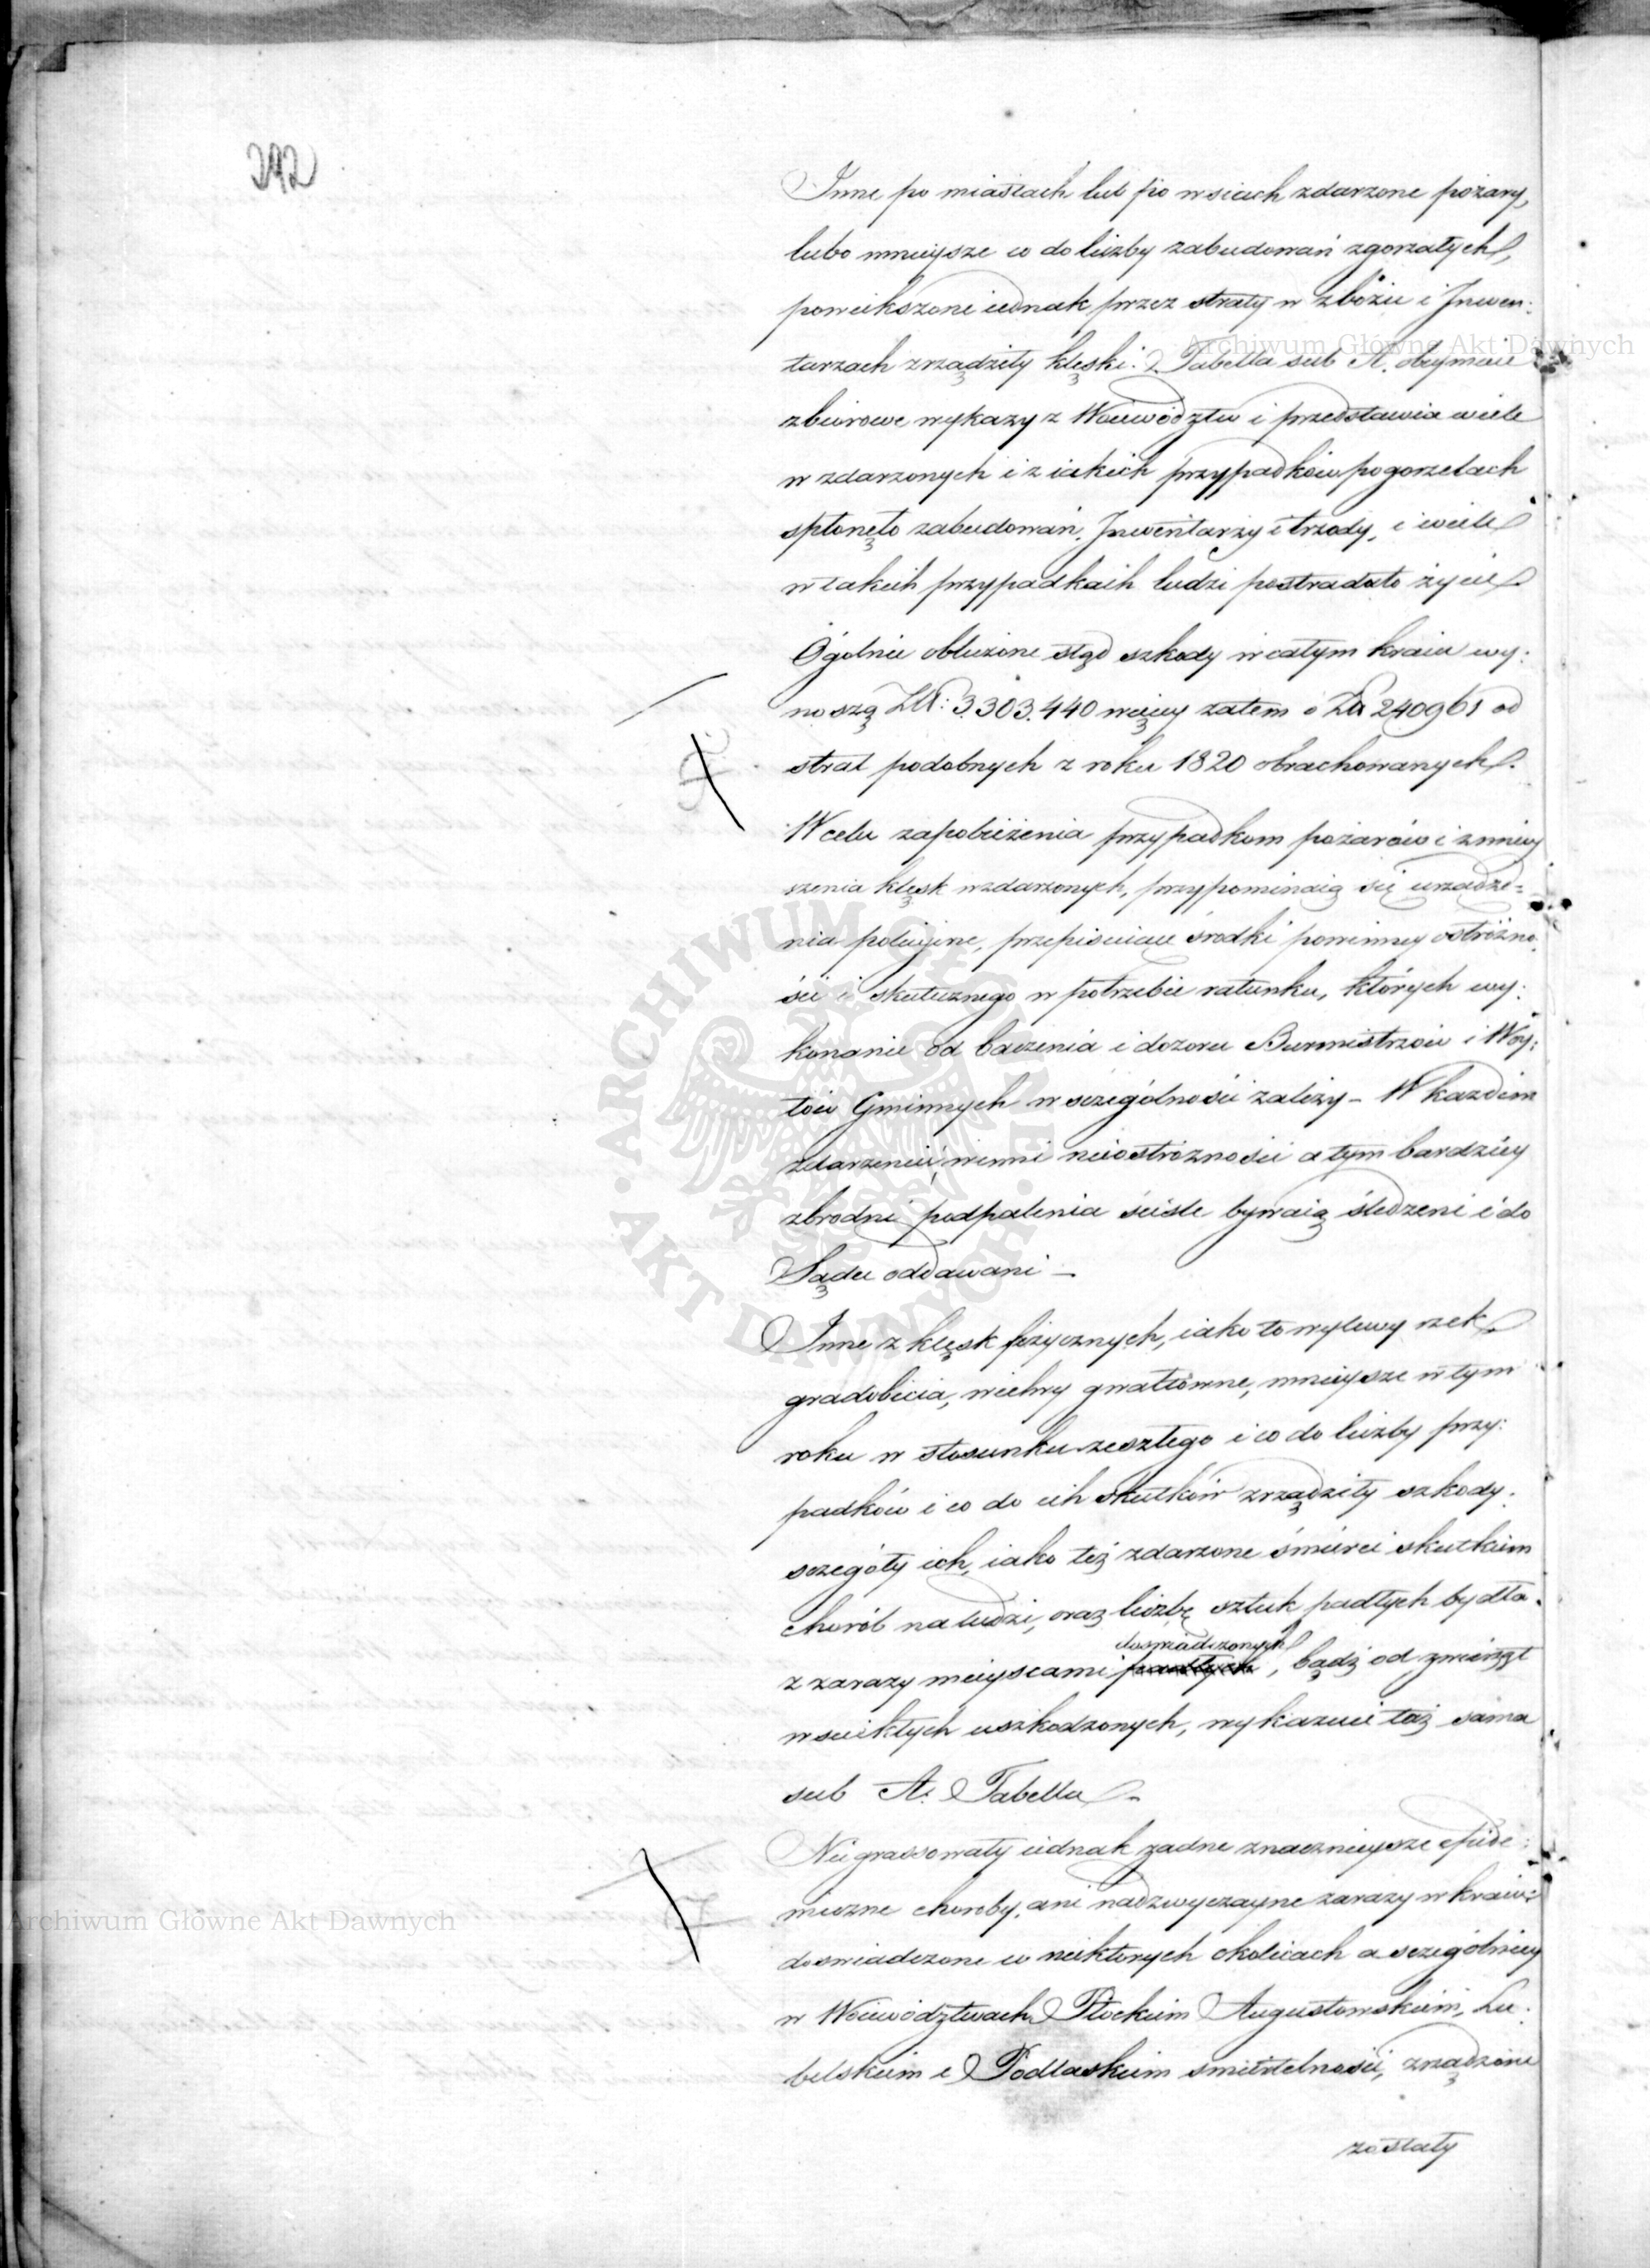 392
Inne po miastach lub po wsiach zdarzone pożary,
lubo mnieysze co do liczby zabudowań zgorzałych,
powiekszone iednak przez straty w zbożu i Inwen:
tarzach zrządziły klęski. Tabella sub A. obeymuie
zbiorowe wykazy z Woiewództw i przedstawia wiele
w zdarzonych i z iakich przypadków pogorzelach
spłonęło zabudowań, Inwentarzy i trzody, i wiele
w takich przypadkach ludzi postradało życie
Ogolnie obliczone stąd szkody w całym kraiu wy:
noszą Zł: 3.303.440 więcy zatem o Zł 240961 od
strat podobnych z roku 1820 obrachowanych.
W celu zapobieżenia przypadkom pożarów i zmniey
szenia klęsk w zdarzonych, przypominaią się urządze=
nia policyine, przepisuiące środki powinney ostrożno:
ści i skutecznego w potrzebie ratunku, których wy:
konanie od baczenia i dozoru Burmistrzów i Wóy:
tów Gminnych w szczególności zależy – W każdem
zdarzeniu, winni nieostrożności a tym bardziey
zbrodni podpalenia ściśle bywaią śledzeni i do
Sądu oddawani –
Inne z klęsk fizycznych, iako to wylewy rzek
gradobicia, wichry gwałtowne, mnieysze w tym
roku w stosunku zeszłego i co do liczby przy:
padków i co do ich skutków zrządziły szkody.
szczegóły ich, iako też zdarzone śmierci skutkiem
chorób na ludzi, oraz liczbę sztuk padłych bydła
doświadczonych
z zarazy mieyscami padłych, bądź od zwierząt
wściekłych uszkodzonych, wykazuie taż sama
sub A. Tabella –
Nie grassowały iednak żadne znacznieysze epide:
miczne choroby, ani nadzwyczayne zarazy w kraiu:
doświadczone w niektórych okolicach a szczególniey
w Woiewództwach Płockiem Augustowskiem, Lu:
belskiem i Podlaskiem śmiertelności, zrządzone
zostały
Archiwum Główne Akt Dawnych
Archiwum Główne Akt Dawnych
ARCHIWUM GŁÓWNE AKT DAWNYCH